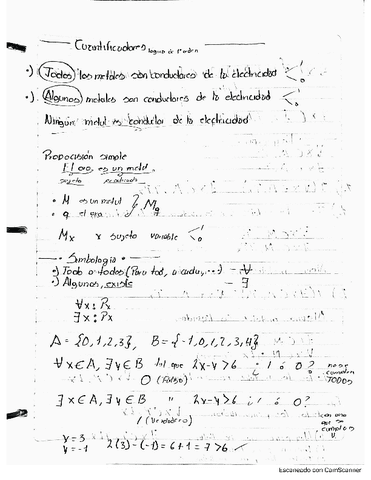 Cuantificadores logica de 1º orden
•) Todos los metales son conductores de la electricidad < 1 0
•) Algunos metales son conductores de la electricidad < 1 0
Ningún metal es conductor de la electricidad
Proposición simple
El oro, es un metal.
sujeto predicado
• M es un metal
• q el oro } Mq
Mx x sujeto variable < 1 0
Simbología
•) Todo o todos (Para todo, a cada, ...) - ∀
•) Algunos, existe - ∃
∀x: Px
∃x: Px
A = {0,1,2,3}, B = {-1,0,1,2,3,4}
∀x∈A, ∃y∈B tal que 2x-y>6 ¿1 ó 0? no se cumplen TODOS
0 (Falso)
∃x∈A, ∃y∈B " 2x-y>6 ¿1 ó 0? con uno que se cumpla es V.
1 (Verdadero)
x = 3
y = -1 2(3)-(-1) = 6+1 = 7 > 6 ✓
Escaneado con CamScanner